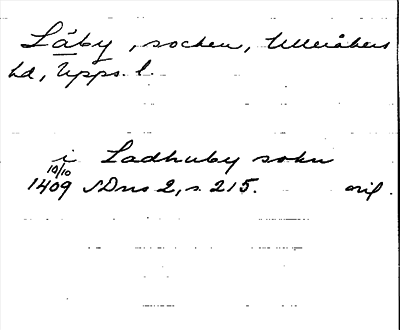 Låby, socken, Ulleråkers
hd, Upps. l.
i Ladhuby sokn
10/10
1409 SDns 2, s. 215. orig.